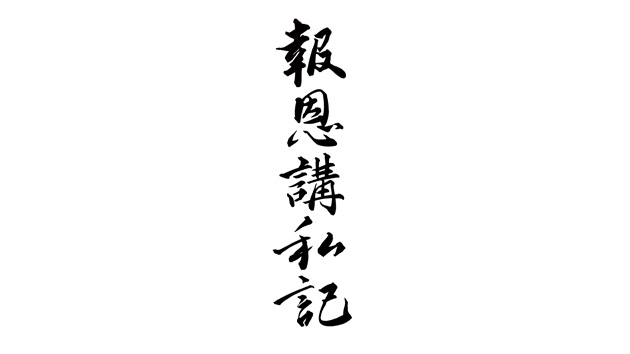 報恩講私記